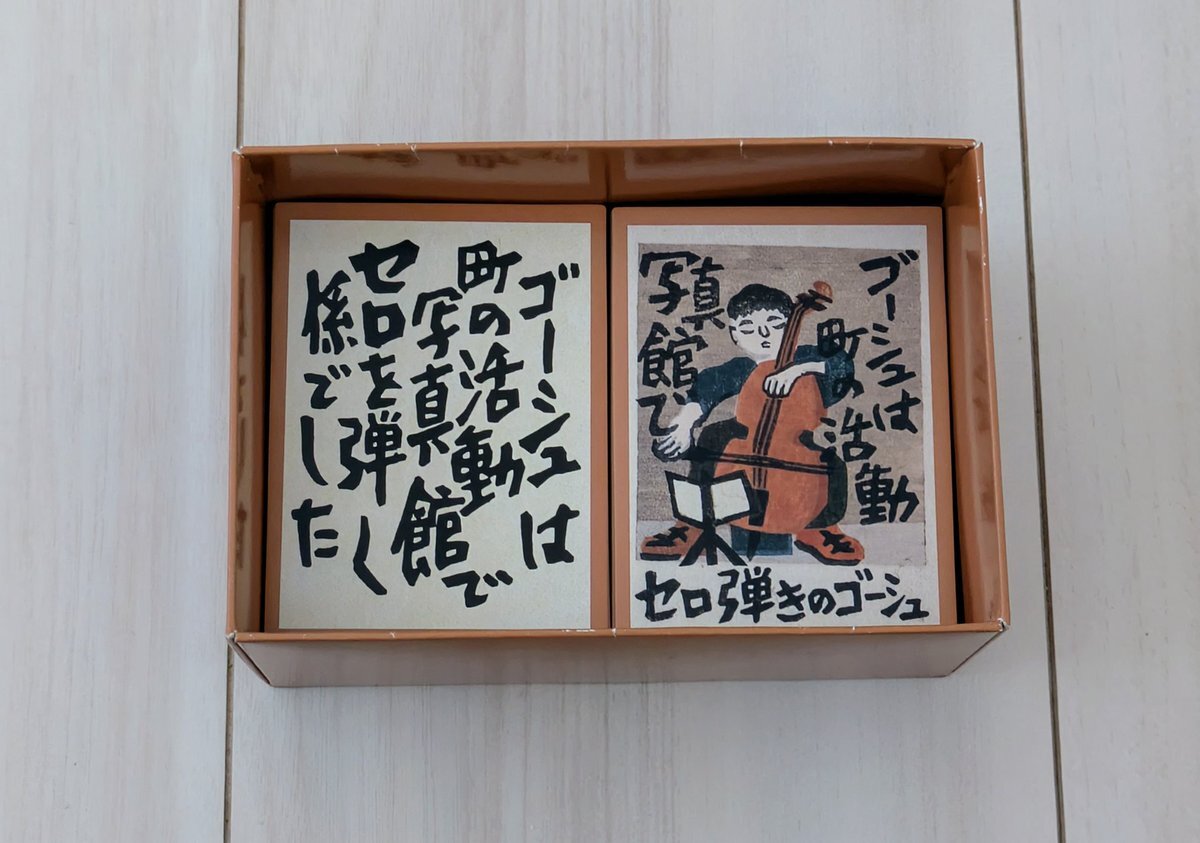 ゴーシュは
町の活動
写真館で
セロを弾く
係でした
ゴーシュは
町の活動
写真館で
セロ弾きのゴーシュ